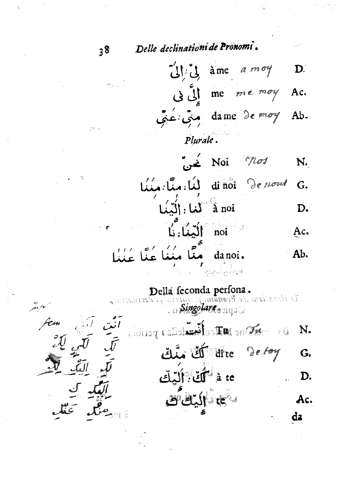 38 Delle declinationi de Pronomi.
لِيْ : إِلَىَّ à me a moy D.
إِلَىَّ نِي me me moy Ac.
مِنِّي : عَنِّي da me de moy Ab.
Plurale.
نَحْنُ Noi nos N.
لِنَا : مِنَّا : مِنَنَا di noi de nous G.
لِنَا : اِلَيْنَا à noi D.
اِلَيْنَا : نَا noi Ac.
مِنَّا مِنَنَا عَنَّا عَنَنَا da noi. Ab.
Della seconda persona.
Singolare.
fem اَنْتِ اَنْتَ Tu Tu N.
لَكَ مِنَّكَ di te de toy G.
لَكَ : اِلَيْكَ à te D.
اِلَيْكِ اِلَيْكَ كَ te Ac.
da